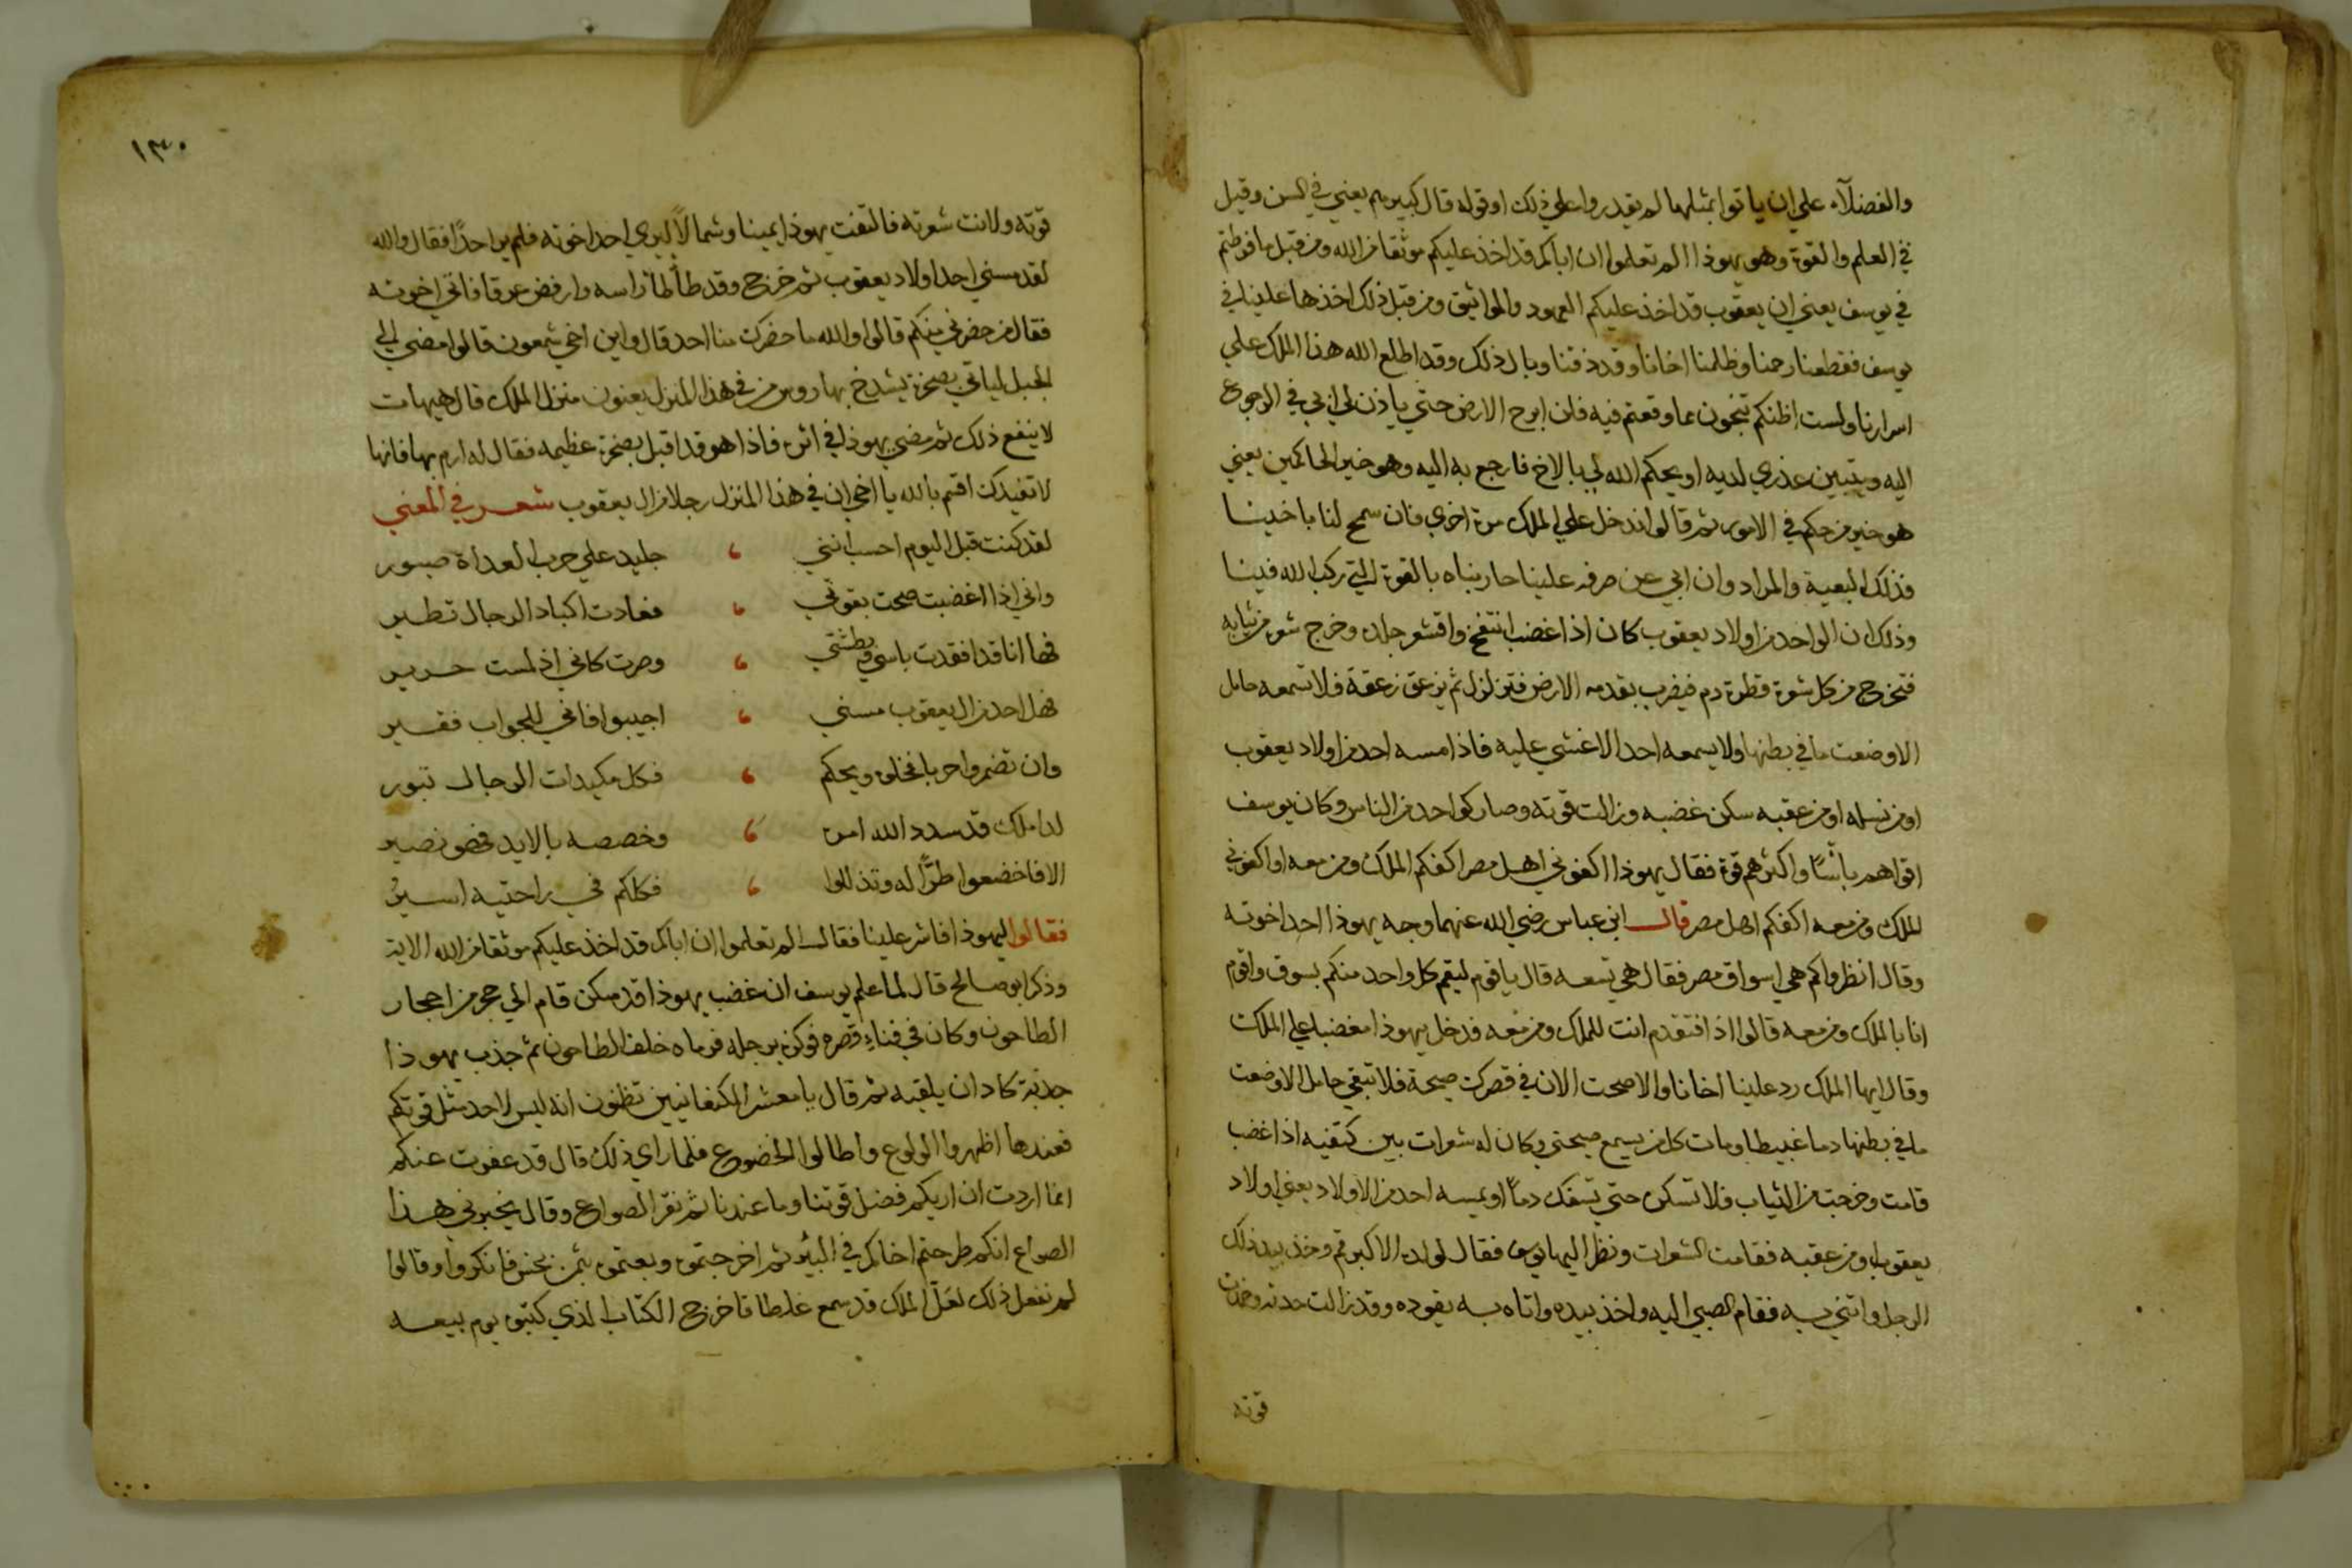 والفضلآء علي ان ياتوا بمثلها لم يقدروا علي ذلك او قوله قال كبيرهم يعني في السن وقيل
في العلم والقوة وهو يهوذا الم تعلموا ان اباكم قد اخذ عليكم موثقا من الله ومن قبل ما فرطتم
في يوسف يعني ان يعقوب قد اخذ عليكم العهود والمواثيق ومن قبل ذلك اخذها علينا في
يوسف فقطعنا رحمنا وظلمنا اخانا وقد ذقنا وبال ذلك وقد اطلع الله هذا الملك علي
اسرارنا ولست اظنكم تنجون عما وقعتم فيه فلن ابرح الارض حتي ياذن لي ابي في الرجوع
اليه ويتبين عذري لديه او يحكم الله لي بالاخ فارجع به اليه وهو خير الحاكمين يعني
هو خير من حكم في الامور ثم قالوا ندخل علي الملك مرة اخري فان سمح لنا باخينا
فذلك البغية والمراد وان ابي عن صرفه علينا حاربناه بالقوة التي ركب الله فينا
وذلك ان الواحد من اولاد يعقوب كان اذا غضب انتفخ واقشعر جلده وخرج شعره من ثيابه
فتخرج من كل شعرة قطرة دم فيضرب بقدمه الارض فتزلزل ثم يزعق زعقة فلا تسمعه حامل
الا وضعت ما في بطنها ولا يسمعه احد الا غشي عليه فاذا مسه احد من اولاد يعقوب
او من نسله او من عقبه سكن غضبه وزالت قوته وصار كواحد من الناس وكان يوسف
اقواهم باسًا واكثرهم قوة فقال يهوذا اكفوني اهل مصر اكفكم الملك ومن معه او اكفوني
الملك ومن معه اكفكم اهل مصر قال ابن عباس رضي الله عنهما وجه يهوذا احد اخوته
وقال انظروا كم هي اسواق مصر فقال هي تسعه قال يا قوم ليقم كل واحد منكم بسوق واقوم
انا بالملك ومن معه قالوا اذا فتقدم انت للملك ومن معه فدخل يهوذا مغضبا علي الملك
وقال ايها الملك رد علينا اخانا والا صحت الان في قصرك صيحة فلا تبقي حامل الا وضعت
ما في بطنها دما غبيطا ومات كل من يسمع صيحتي وكان له شعرات بين كتفيه اذا غضب
قامت وخرجت من الثياب فلا تسكن حتي تسفك دماً او يمسه احد من الاولاد يعني اولاد
يعقوب او من عقبه فقامت الشعرات ونظر اليها يوسف فقال لولده الاكبر قم وخذ بيد ذلك
الرجل واتني به فقام الصبي اليه واخذ بيده واتاه به يقوده وقد زالت حدته وخمدت
قوته
١٣٠
قوته ولانت شعرته فالتفت يهوذا يمينا وشمالاً ليري احد اخوته فلم ير احدًا فقال والله
لقد مسني احد اولاد يعقوب ثم خرج وقد طأطأ راسه وارفض عرقا فاتي اخوته
فقال من حضرني منكم قالوا والله ما حضرك منا احد قال واين اخي شمعون قالوا مضي الي
الجبل لياتي بصخرة يشدخ بها روس من في هذا المنزل يعنون منزل الملك قال هيهات
لا ينفع ذلك ثم مضي يهوذا في اثره فاذا هو قد اقبل بصخرة عظيمه فقال له ارم بها فانها
لا تفيدك اقسم بالله يا اخي ان في هذا المنزل رجلا من ال يعقوب شعر في المعني
لقد كنت قبل اليوم احسب انني ، جليد علي حرب العداة صبور
واني اذا اغضبت صحت بقوتي ، فغادت اكباد الرجال تطير
فها انا قد افقدت باسي وبطشتي ، وصرت كاني اذ لمست حرير
فهل احد من ال يعقوب مسني ، اجيبوا فاني للجواب فقير
وان تضمروا حربا فخلوه ويحكم ، فكل مكيدات الرجال تبور
لذا ملك قد سدد الله امره ، وخصصه بالايد فهو نصير
الا فاخضعوا طرًّا له وتذللوا ، فكلكم في راحتيه اسيرُ
فقالوا ليهوذا فاشر علينا فقال الم تعلموا ان اباكم قد اخذ عليكم موثقا من الله الاية
وذكر ابو صالح قال لما علم يوسف ان غضب يهوذا قد سكن قام الي حجر من احجار
الطاحون وكان في فناءِ قصره فركزه برجله فرماه خلف الطاحون ثم جذب يهوذا
جذبة كاد ان يلقيه ثم قال يا معشر الكنعانيين تظنون انه ليس لاحد مثل قوتكم
فعندها اظهروا الولوع واطالوا الخضوع فلما راي ذلك قال قد عفوت عنكم
انما اردت ان اريكم فضل قوتنا وما عندنا ثم نقر الصواع وقال يخبرني هذا
الصواع انكم طرحتم اخاكم في البئر ثم اخرجتموه وبعتموه بثمن بخس فانكروا وقالوا
لم نفعل ذلك لعَلّ الملك قد سمع غلطا فاخرج الكتاب الذي كتبوه يوم بيعه